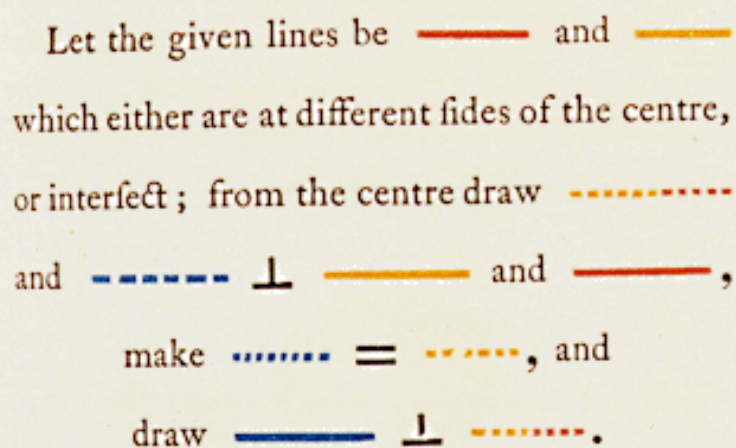 Let the given lines be and
which either are at different ſides of the centre,
or interſect ; from the centre draw
and ⊥ and ,
make = , and
draw ⊥ .